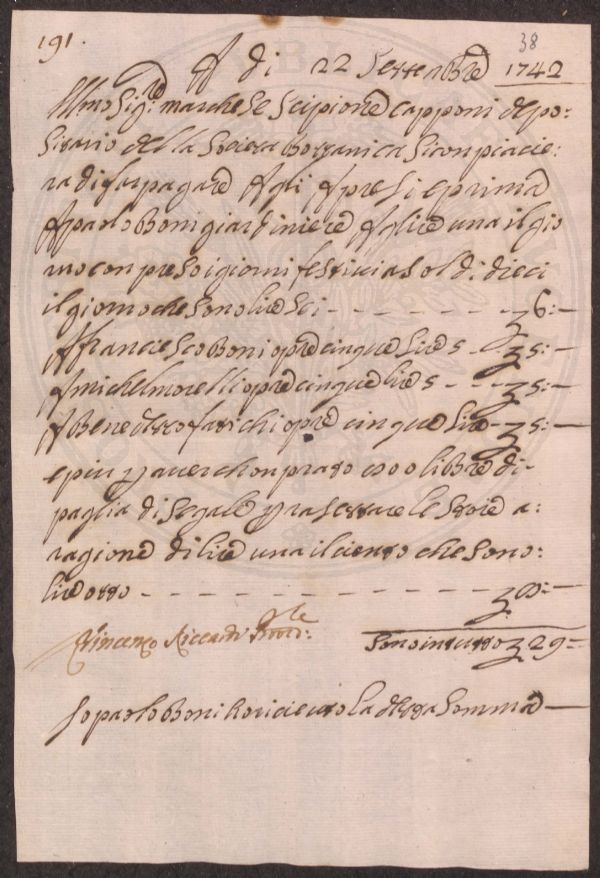 191.
38
A di 22 Settenbre 1742
Illmo Sigre marchese Scipione capponi depo:
sitario della Società Bottanica Si conpiacie:
ra di far pagare Agli Apresi e prima
A paolo Boni giardiniere A lire una il gio
rno conpreso i giorni festivi a soldi dieci
il giorno che sono lire sei - - - - - - - - 6:-
A franciesco Boni opre cinque lire 5 - - 5:-
A michel morelli opre cinque lire 5 - - - 5:-
A Benedetto fati chi opre cinque lire - 5:-
e piu p aver chonprato 800 libre di-
paglia di segale p rasettare le stoie a:
ragione di lire una il ciento che sono:
lire otto - - - - - - - - - - - - 8:-
Vincenzo Riccardi
Sono in tutto 29=
Io paolo Boni Ricieuto la detta Somma